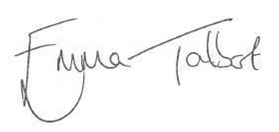 Emma Talbot